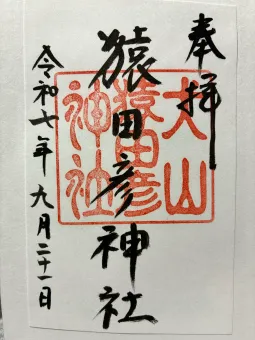 奉拝
猿田彦神社
令和七年九月二十一日
大山
猿田彦
神社